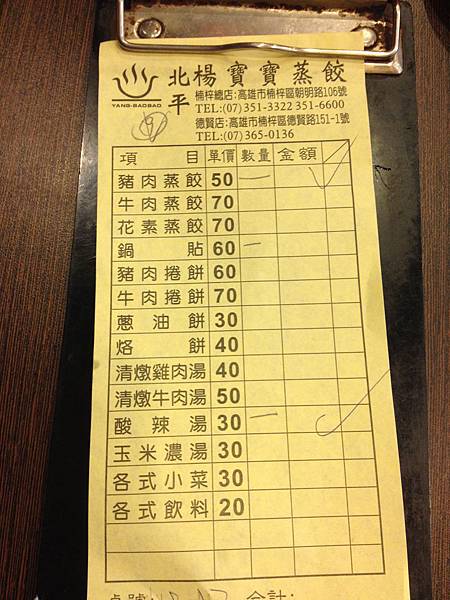 北楊寶寶蒸餃
平
YANG-BAOBAO
楠梓總店:高雄市楠梓區朝明路106號
TEL:(07)351-3322 351-6600
德賢店:高雄市楠梓區德賢路151-1號
TEL:(07)365-0136
項目 單價 數量 金額
豬肉蒸餃 50 一
牛肉蒸餃 70
花素蒸餃 70
鍋貼 60 一
豬肉捲餅 60
牛肉捲餅 70
蔥油餅 30
烙餅 40
清燉雞肉湯 40
清燉牛肉湯 50
酸辣湯 30 一
玉米濃湯 30
各式小菜 30
各式飲料 20
桌號: 合計: